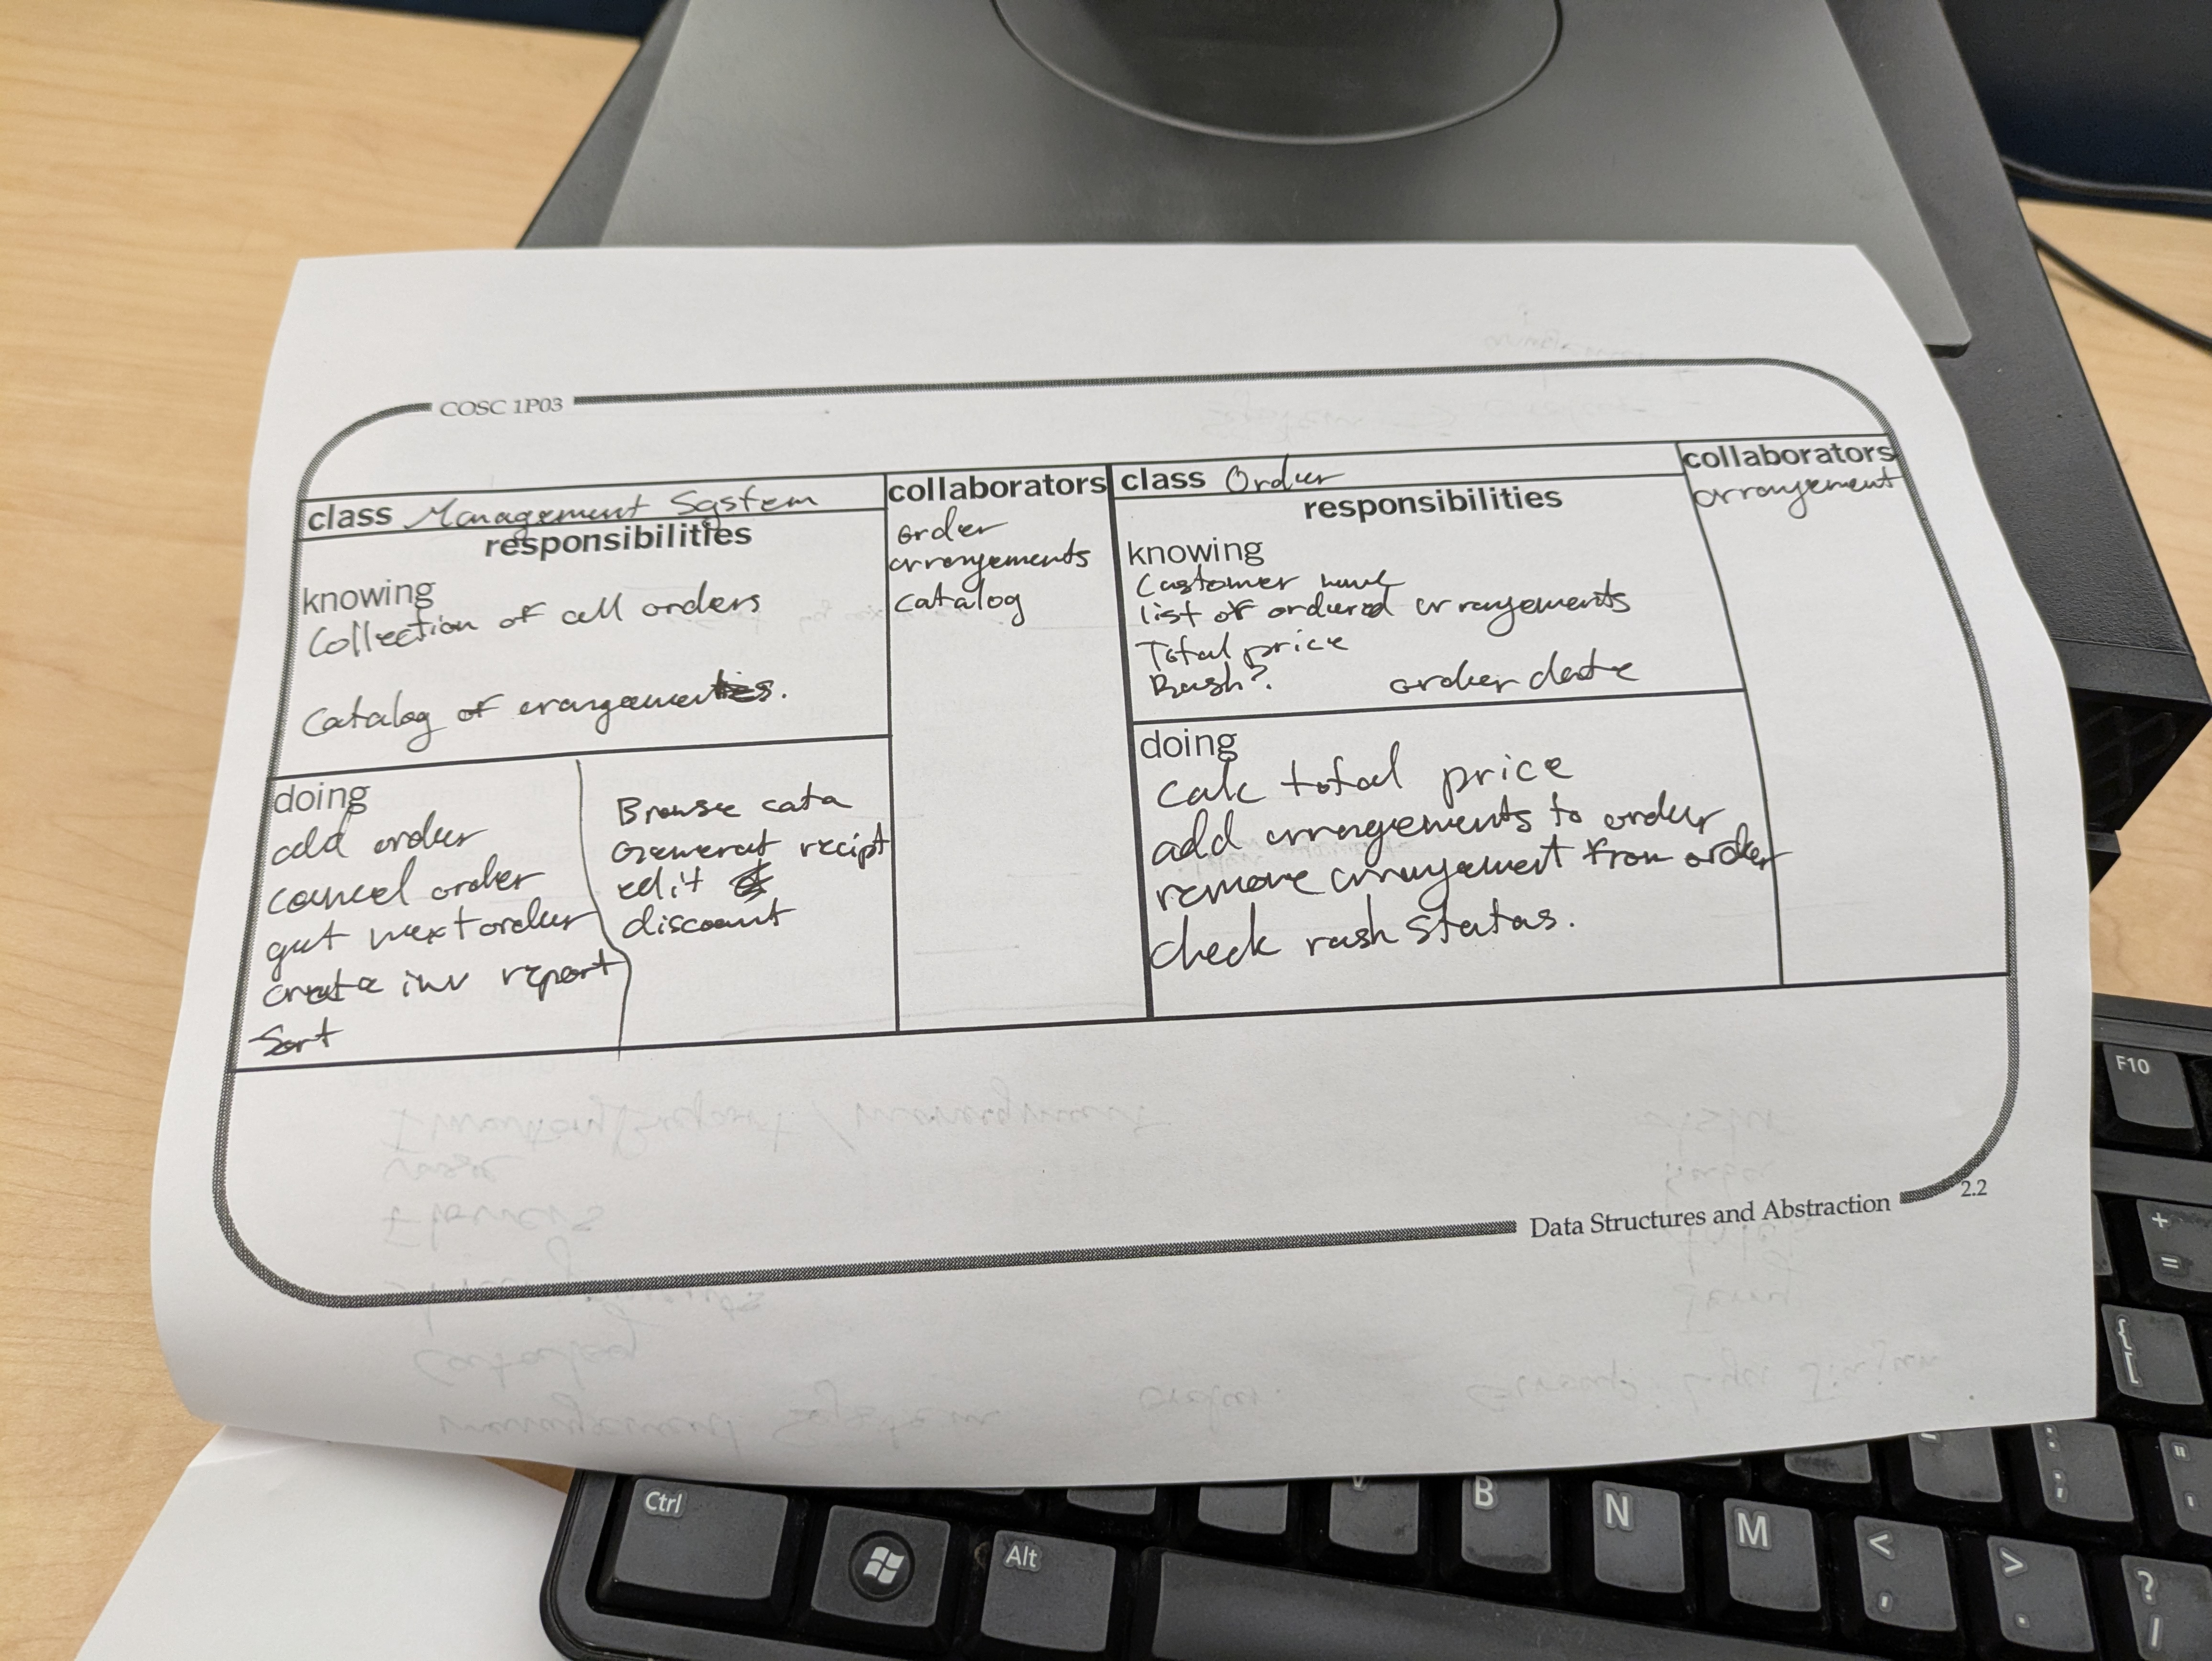 COSC 1P03
class Management System
responsibilities
knowing
Collection of all orders
Catalog of
doing
add order
cancel order
get next order
create inv report
Sort
Browse cata
Generat recipt
edit
discount
collaborators
order
arrangements
catalog
class Order
responsibilities
knowing
Customer name
list of ordered arrangements
Total price
Rush?
order date
doing
calc total price
add arrangements to order
remove arrangement from order
check rush status.
collaborators
arrangement
Data Structures and Abstraction
2.2
F10
+
=
{
[
Ctrl
Alt
B
N
M
<
,
>
.
?
/
:
;
"
'